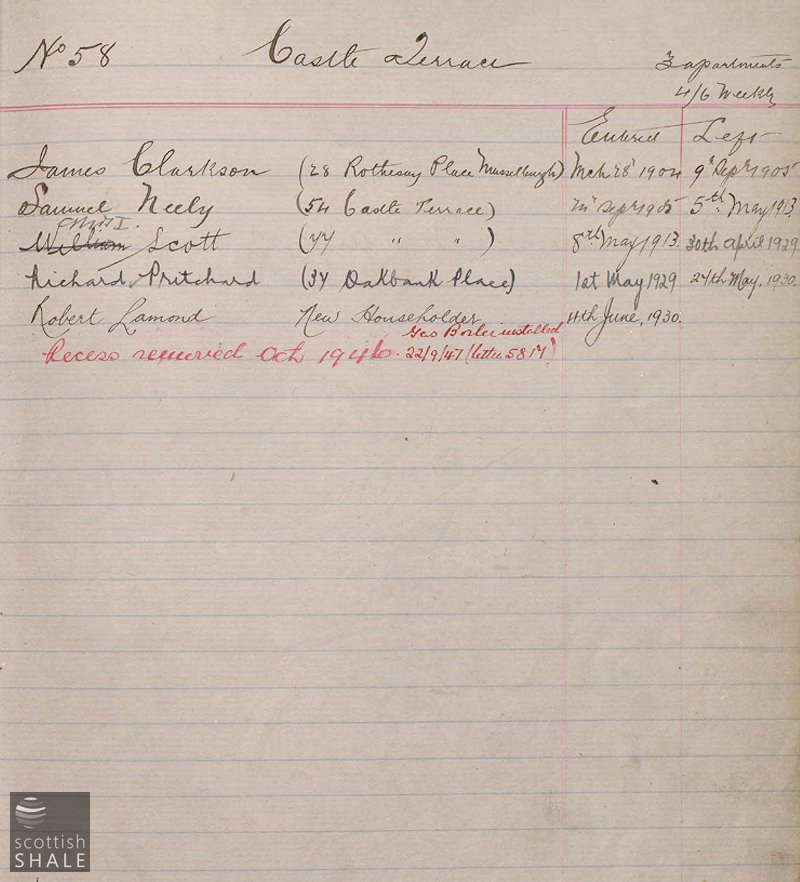 No 58 Castle Terrace 3 apartments
4/6 Weekly
Entered Left
James Clarkson (28 Rothesay Place Musselburgh) Mch 28th 1904 9th Sept 1905
Samuel Neely (54 Castle Terrace) Sept 1905 5th May 1913.
William Scott (44 " " ) 8th May 1913. 30th April 1929.
Richard Pritchard (34 Oakbank Place) 1st May 1929 24th May, 1930.
Robert Lamond New Householder 4th June, 1930.
Gas Boiler installed
Recess removed Oct 1946. 22/9/47 (letter 5819)
scottish
SHALE